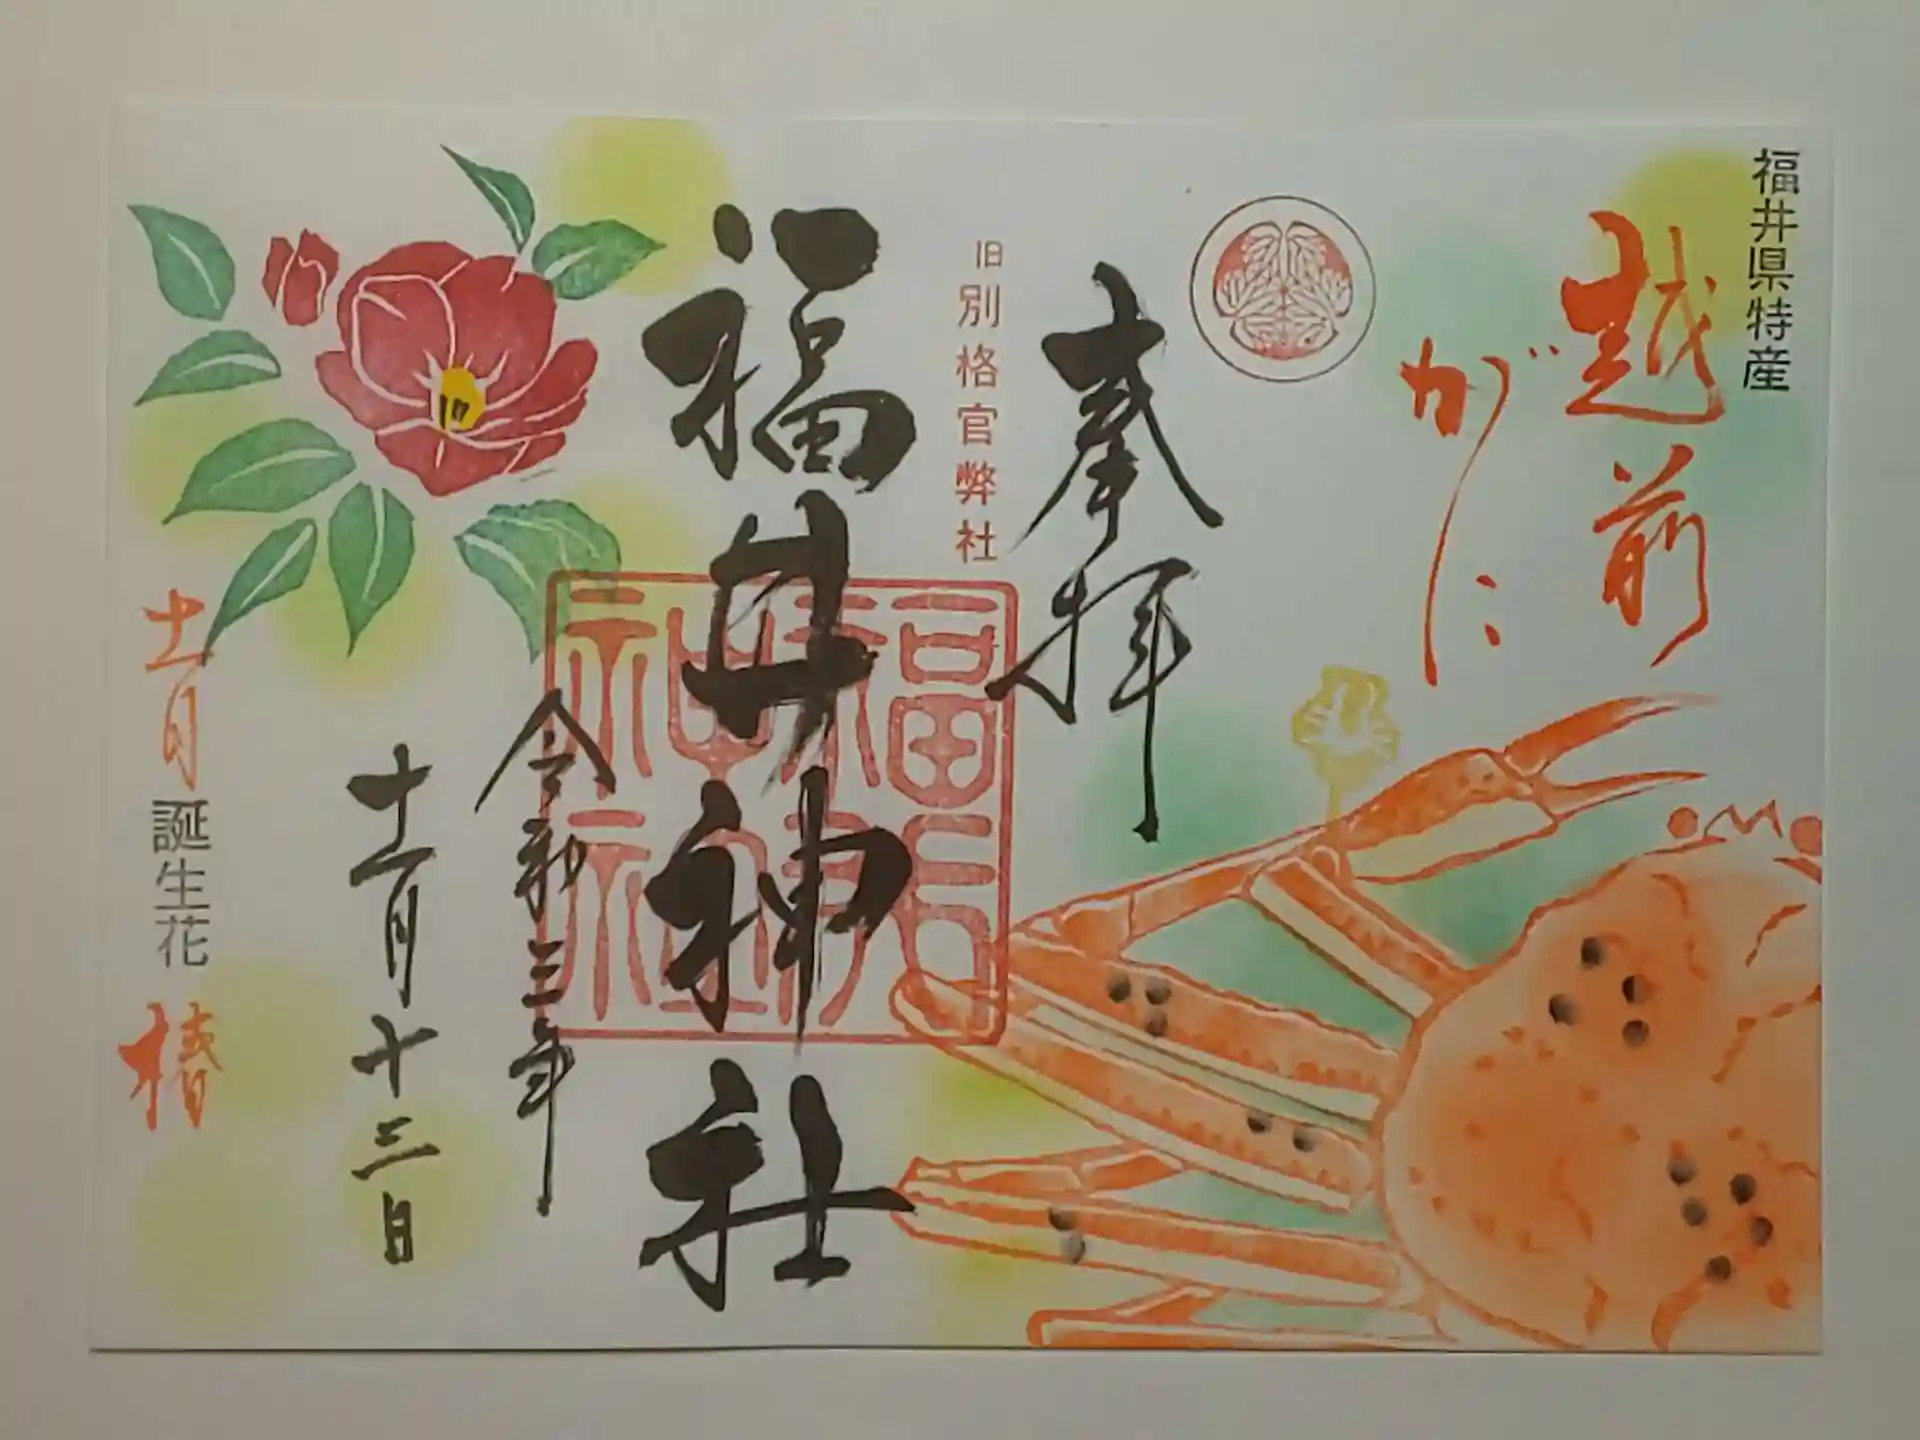 福井県特産
越前
がに
奉拝
旧別格官弊社
福井神社
福井神社
令和三年
十一月十三日
十一月誕生花 椿